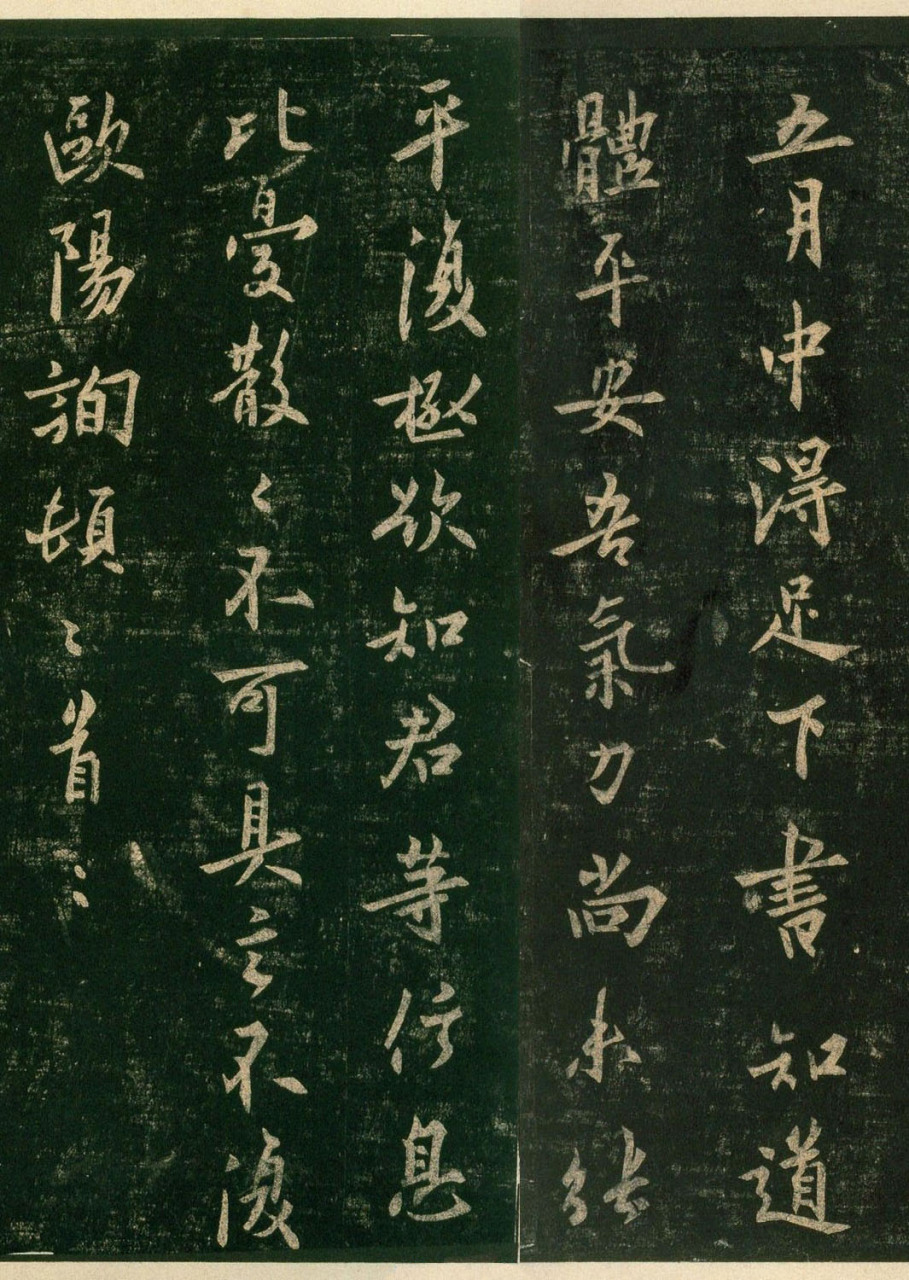 五月中得足下書知道
體平安吾氣力尚未能
平復極欲知君等信息
比憂散々不可具言不復
歐陽詢頓〻首〻